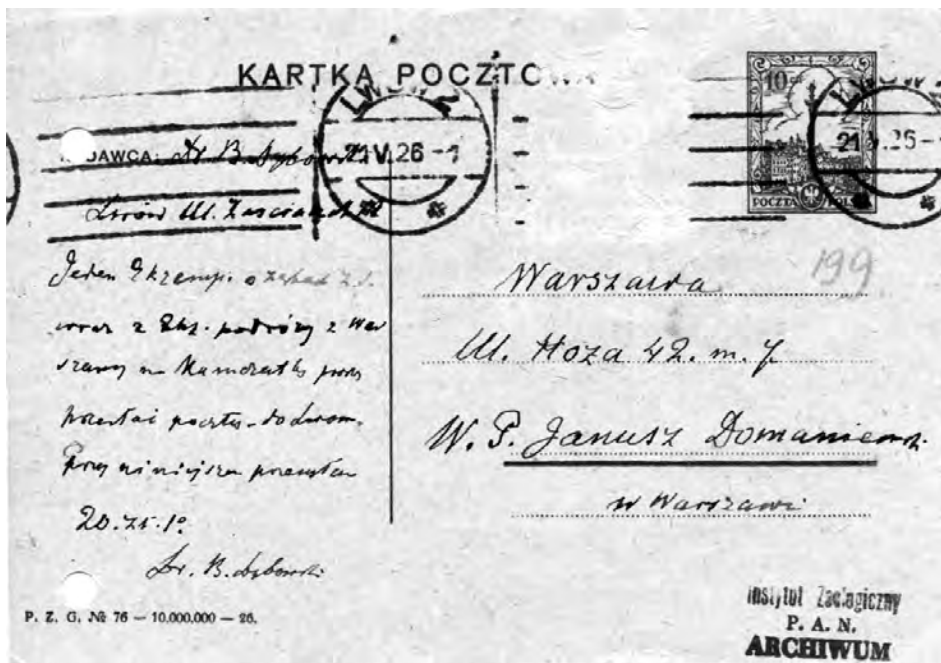 KARTKA POCZTOWA
LWÓW 2
21 V.26 -1
10
LWÓW 2
21 V.26 -
POCZTA POLSK
NADAWCA: Dr. B. Dybowski
Lwów Ul.
199
Jeden Ekzemp. o
wraz z Ekz. podróży z War
szawy na Kamczatkę proszę
przesłać pocztą do Lwowa.
Przy niniejszem przesyłam
20. zł.
Dr. B. Dybowski
Warszawa
Ul. Hoża 42. m. 7
W. P. Janusz Domaniewski
w Warszawie
P. Z. G. № 76 — 10.000.000 — 26.
Instytut Zoologiczny
P. A. N.
ARCHIWUM